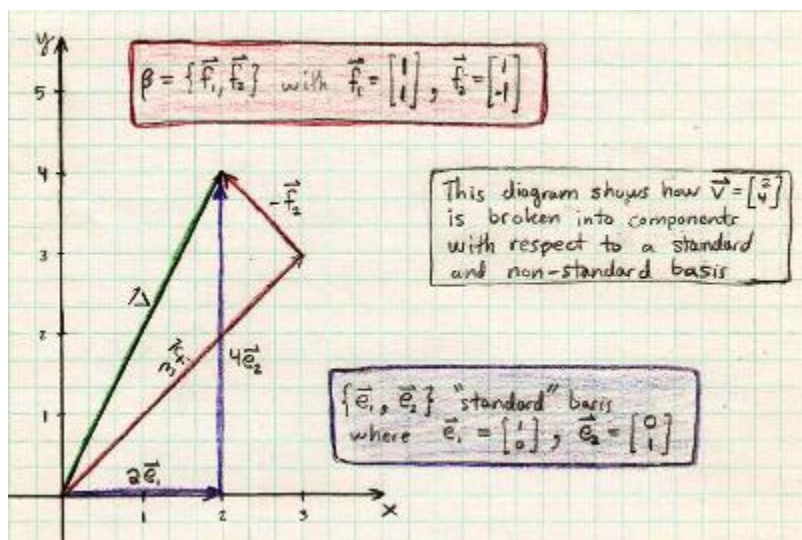 y
β = {f⃗₁, f⃗₂} with f⃗₁ = [1 1], f⃗₂ = [1 -1]
5
4
3
2
1
This diagram shows how v⃗ = [2 4]
is broken into components
with respect to a standard
and non-standard basis
-f⃗₂
v⃗
3f⃗₁
4e⃗₂
{e⃗₁, e⃗₂} "standard" basis
where e⃗₁ = [1 0], e⃗₂ = [0 1]
2e⃗₁
1 2 3 x